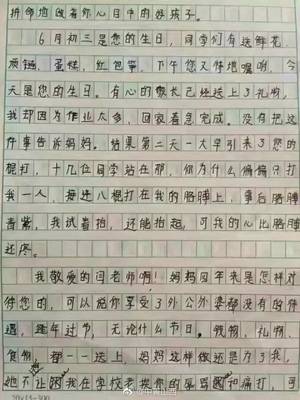 拼命地做着你心目中的好孩子。
6月初三是您的生日,同学们有送鲜花、
项链,蛋糕,红包等,下午您又伴嘱咐,今
天是您的生日。有心的家长已经送上了礼物,
我却因为作业太多,回家着急完成。没有把这
件事告诉妈妈。结果第二天一大早引来了您的
棍打,十几位同学站在那,你为什么偏偏只打
我一人,接连八棍打在我的胳膊上,事后胳膊
青紫,我试着抬,还能抬起,可我的心比胳膊
还疼。
我敬爱的闫老师啊!妈妈四年来是怎样对
待您的,可以说你享受了外公外婆都没有的待
遇,逢年过节,无论什么节日。钱物,礼物、
食物,都一一送上,妈妈这样做还是为了我,
她不让我在学校老挨你的辱骂和痛打,可
20×15=300